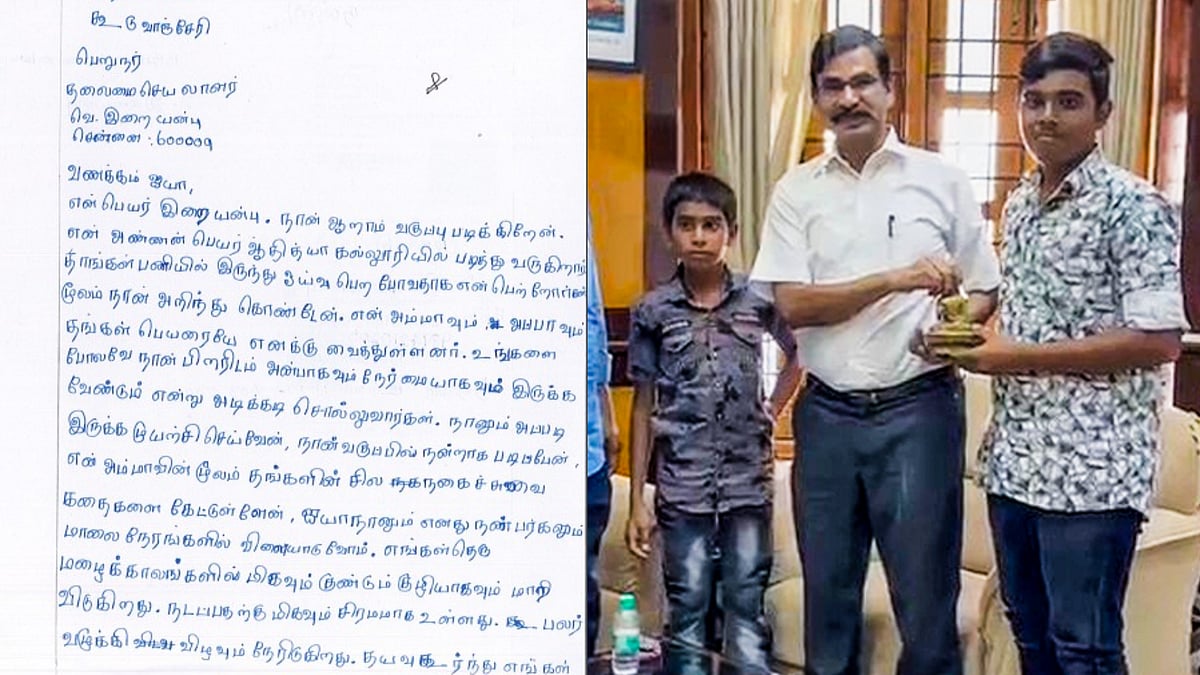 கூடுவாஞ்சேரி
பெறுநர்
தலைமை செயலாளர்
வெ. இறையன்பு
சென்னை : 600009
வணக்கம் ஐயா,
என் பெயர் இறையன்பு. நான் ஆறாம் வகுப்பு படிக்கிறேன்.
என் அண்ணன் பெயர் ஆதித்யா கல்லூரியில் படித்து வருகிறான்
தாங்கள் பணியில் இருந்து ஓய்வு பெற போவதாக என் பெற்றோர்கள்
மூலம் நான் அறிந்து கொண்டேன். என் அம்மாவும் அப்பாவும்
தங்கள் பெயரையே எனக்கு வைத்துள்ளனர். உங்களை
போலவே நான் பிறரிடம் அன்பாகவும் நேர்மையாகவும் இருக்க
வேண்டும் என்று அடிக்கடி சொல்லுவார்கள். நானும் அப்படி
இருக்க முயற்சி செய்வேன், நான் வகுப்பில் நன்றாக படிப்பேன்,
என் அம்மாவின் மூலம் தங்களின் சில நகைச்சுவை
கதைகளை கேட்டுள்ளேன், ஐயா நானும் எனது நண்பர்களும்
மாலை நேரங்களில் விளையாடுவோம். எங்கள் தெரு
மழைக்காலங்களில் மிகவும் குண்டும் குழியாகவும் மாறி
விடுகிறது. நடப்பதற்கு மிகவும் சிரமமாக உள்ளது. பலர்
வழுக்கி விழவும் நேரிடுகிறது. தயவு கூர்ந்து எங்கள்